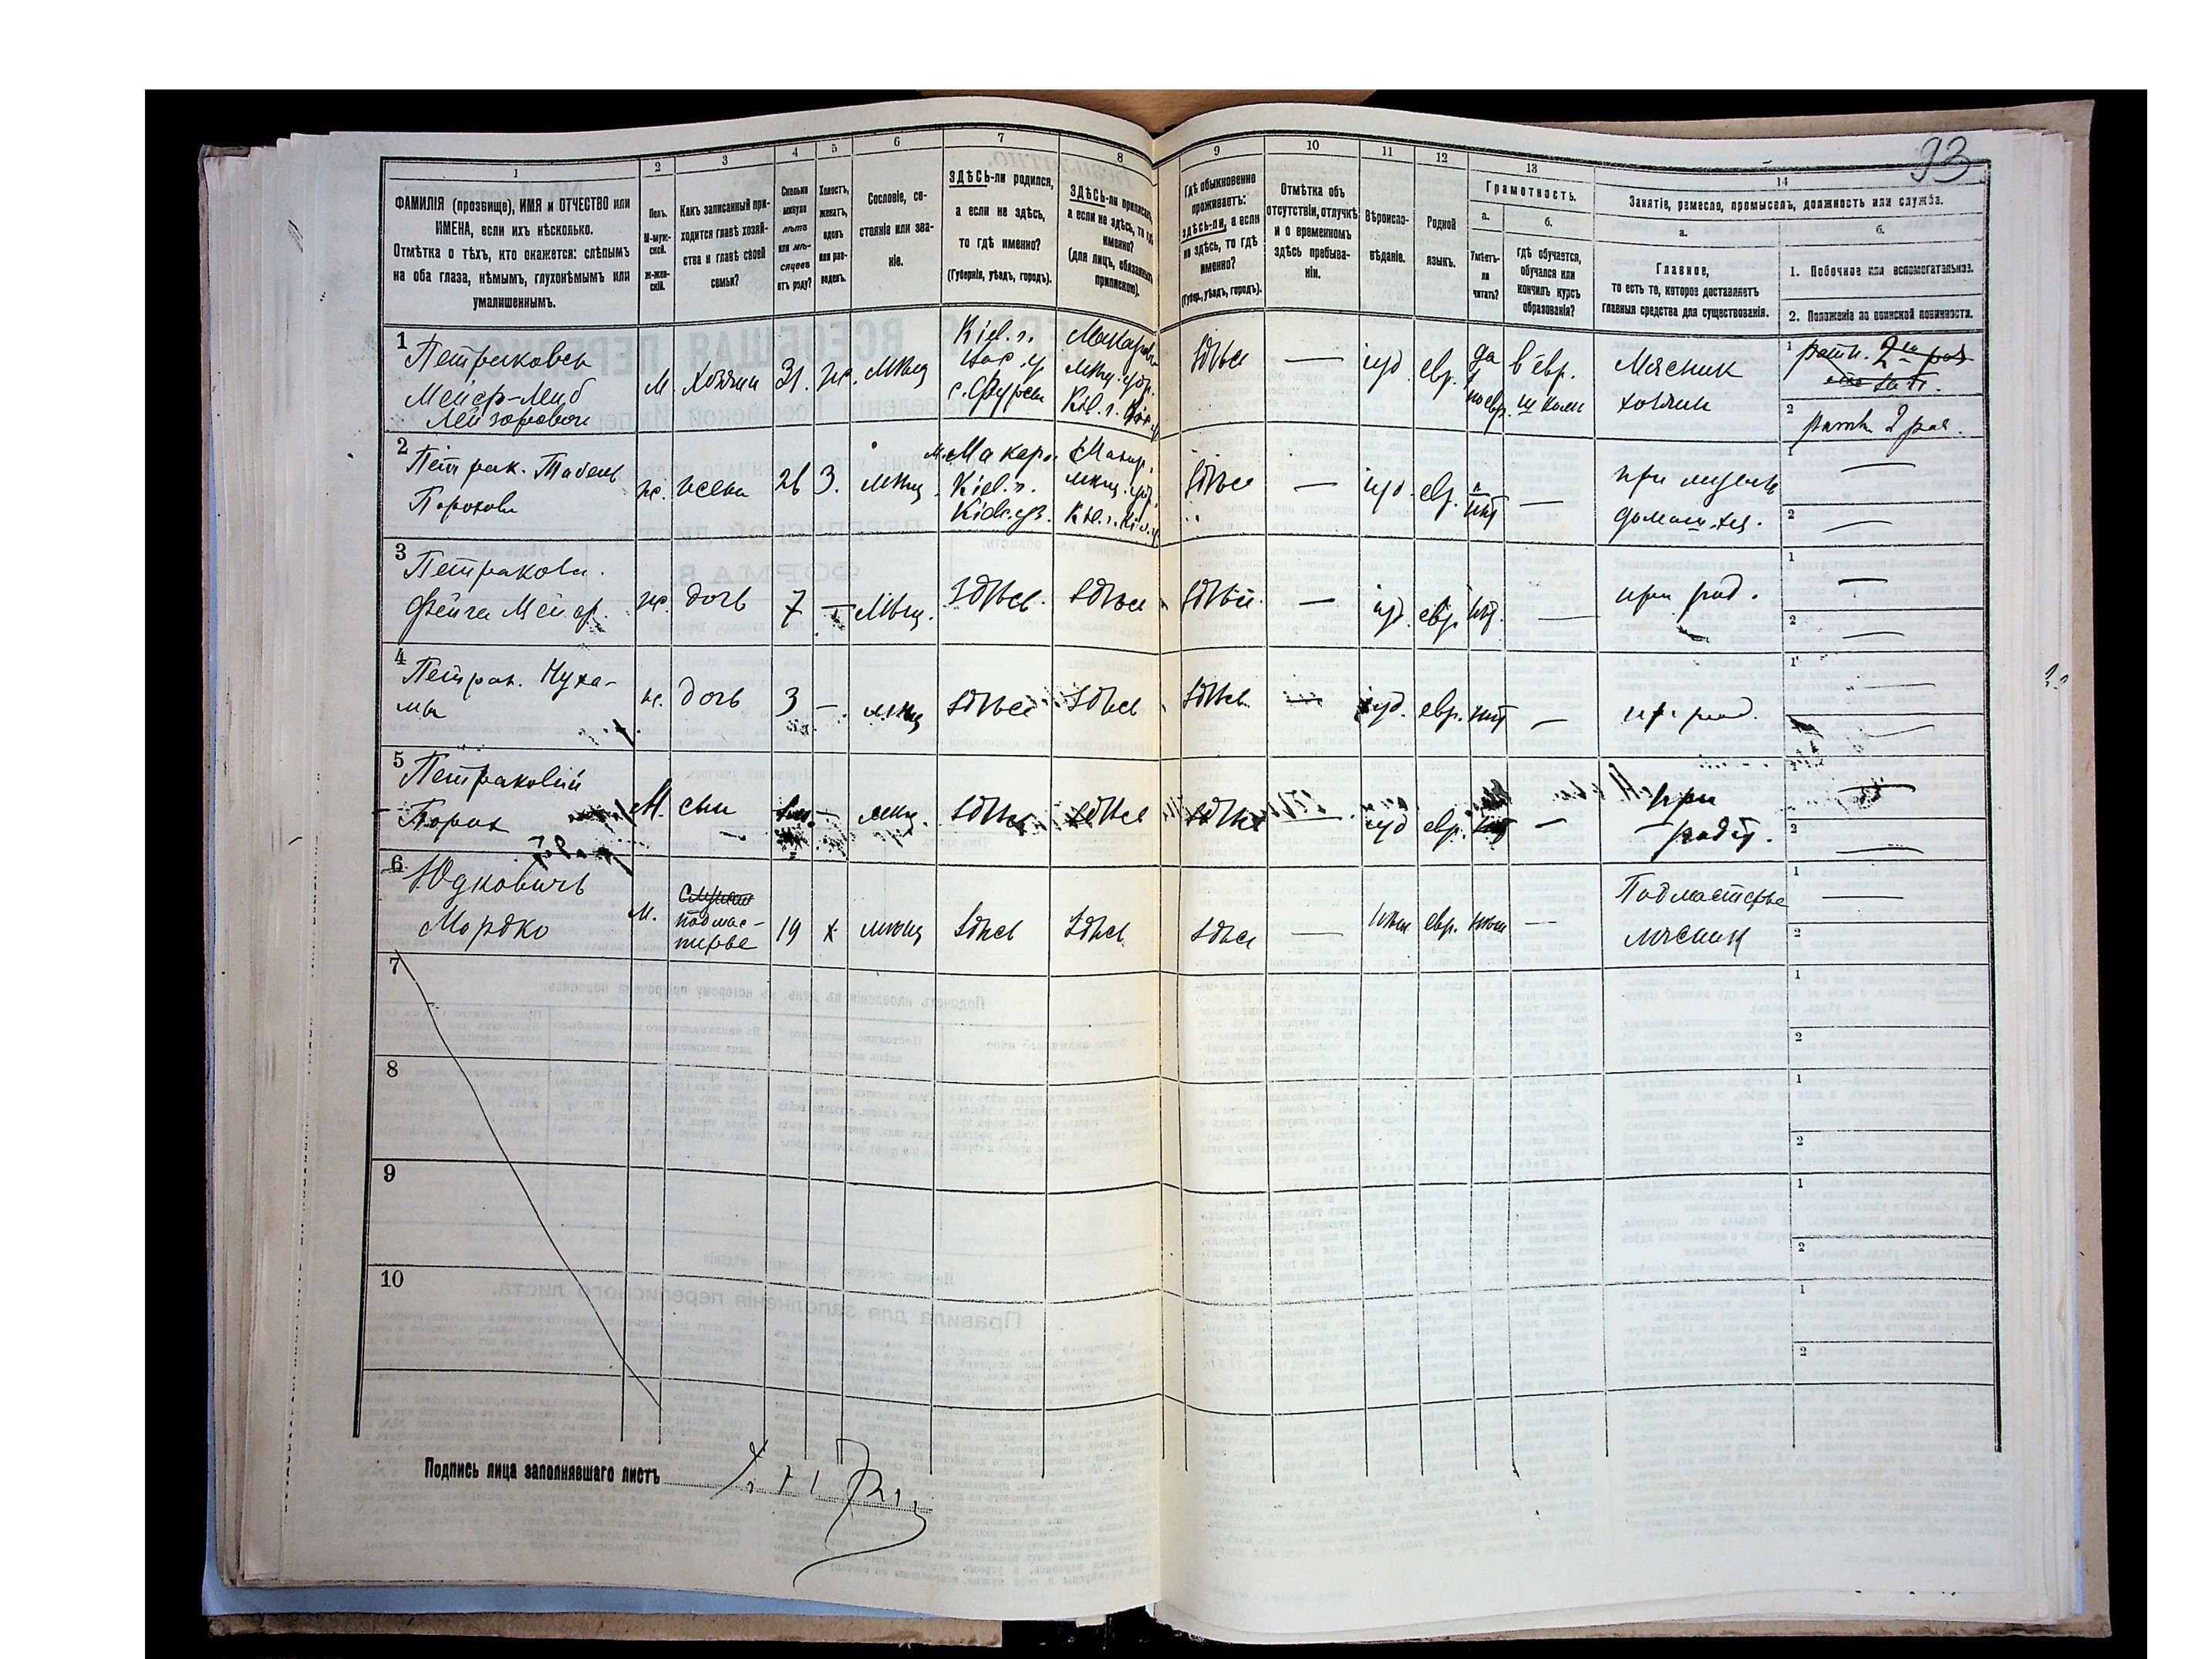 93
1 2 3 4 5 6 7 8 9 10 11 12 13 14
ФАМИЛІЯ (прозвище), ИМЯ и ОТЧЕСТВО или
ИМЕНА, если ихъ нѣсколько.
Отмѣтка о тѣхъ, кто окажется: слѣпымъ
на оба глаза, нѣмымъ, глухонѣмымъ или
умалишеннымъ.
Полъ.
М-муж-
ской.
Ж-жен-
скій.
Какъ записанный при-
ходится главѣ хозяй-
ства и главѣ своей
семьи?
Сколько
минуло
лѣтъ
или мѣ-
сяцевъ
отъ роду?
Холостъ,
женатъ,
вдовъ
или раз-
веденъ.
Сословіе, со-
стояніе или зва-
ніе.
ЗДѢСЬ-ли родился,
а если не здѣсь,
то гдѣ именно?
(Губернія, уѣздъ, городъ).
ЗДѢСЬ-ли приписанъ,
а если не здѣсь, то гдѣ
именно?
(для лицъ, обязанныхъ
припискою).
Гдѣ обыкновенно
проживаетъ:
здѣсь-ли, а если
не здѣсь, то гдѣ
именно?
(Губер., уѣздъ, городъ).
Отмѣтка объ
отсутствіи, отлучкѣ
и о временномъ
здѣсь пребыва-
ніи.
Вѣроиспо-
вѣданіе.
Родной
языкъ.
Грамотность.
а.
Умѣетъ-
ли
читать?
б.
гдѣ обучается,
обучался или
кончилъ курсъ
образованія?
Занятіе, ремесло, промыселъ, должность или служба.
а.
Главное,
то есть то, которое доставляетъ
главныя средства для существованія.
б.
1. Побочное или вспомогательное.
2. Положеніе по воинской повинности.
1
Петраковск
Мейер-Лейб
Лейзорович
М. хозяин 31. ж. мѣщ
Кіев. г.
с. Фурсы
Макаров
мѣщ. 
Кіев. г.
здѣсь — іуд. евр. да
по евр.
в евр.
школе
Мясник
хозяин
1
2 ратн. 2 раз.
2
Петрак. Табель
ж. жена 26 З. мѣщ.
м. Макаро.
Кіев. г.
Кіев. уз.
Макар.
мѣщ.
здѣсь — іуд. евр. нѣт —
при мужѣ
домаш. хоз.
1 —
2 —
3
Петракова.
Фейга Мейер.
ж. дочь 7 — мѣщ. здѣсь. здѣсь здѣсь. — іуд. евр. нѣт. —
при род.
1 —
2 —
4
Петрак. Нуха-
ма
ж. дочь 3 — мѣщ здѣсь здѣсь здѣсь — іуд. евр. нѣт —
при род.
1 —
—
5
Петраковскій
Порох
М. сын — мѣщ. здѣсь здѣсь здѣсь — іуд евр. нѣт —
при
родит.
1 —
2 —
6
Юдковичъ
Мордко
М.
подмас-
терье
19 х мѣщ здѣсь здѣсь здѣсь — евр. —
Подмастерье
мясник
1 —
2
7 1
2
8 1
2
9 1
2
10 1
2
Подпись лица заполнявшаго листъ